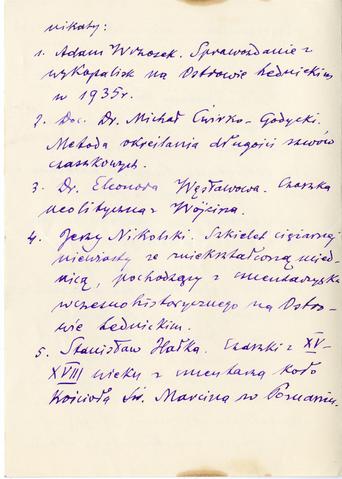 nikaty:
1. Adam Wrzosek. Sprawozdanie z
wykopalisk na Ostrowie Lednickim
w 1935 r.
2. Doc. Dr. Michał Ćwirko-Godycki.
Metoda określania długości szwów
czaszkowych.
3. Dr. Eleonora Węsławowa. Czaszka
neolityczna z Wójcina.
4. Jerzy Nikolski. Szkielet ciężarnej
niewiasty ze zniekształconą mied-
nicą, pochodzący z cmentarzyska
wczesnohistorycznego na Ostro-
wie Lednickim.
5. Stanisław Hałka. Czaszki z XV-
XVIII wieku z cmentarza koło
Kościoła Św. Marcina w Poznaniu.